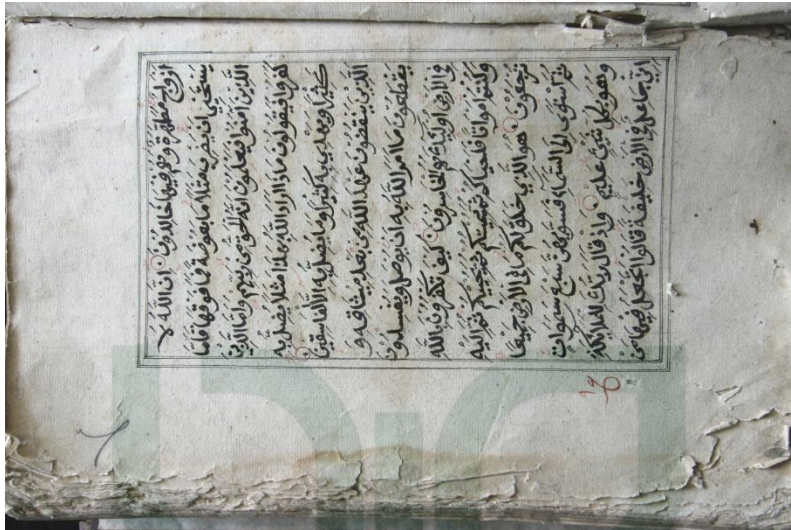 ازواج مطهرة وهم فيها خالدون ان الله لا
يستحيي ان يضرب مثلا ما بعوضة فما فوقها فاما
الذين امنوا فيعلمون انه الحق من ربهم واما الذين
كفروا فيقولون ماذا اراد الله بهذا مثلا يضل به
كثيرا ويهدي به كثيرا وما يضل به الا الفاسقين
الذين ينقضون عهد الله من بعد ميثاقه و
يقطعون ما امر الله به ان يوصل ويفسدون
في الارض اولئك هم الخاسرون كيف تكفرون بالله
وكنتم امواتا فاحياكم ثم يميتكم ثم يحييكم ثم اليه
ترجعون هو الذي خلق لكم ما في الارض جميعا
ثم استوى الى السماء فسويهن سبع سموات
وهو بكل شيئ عليم واذ قال ربك للملائكة
اني جاعل في الارض خليفة قالوا اتجعل فيها من